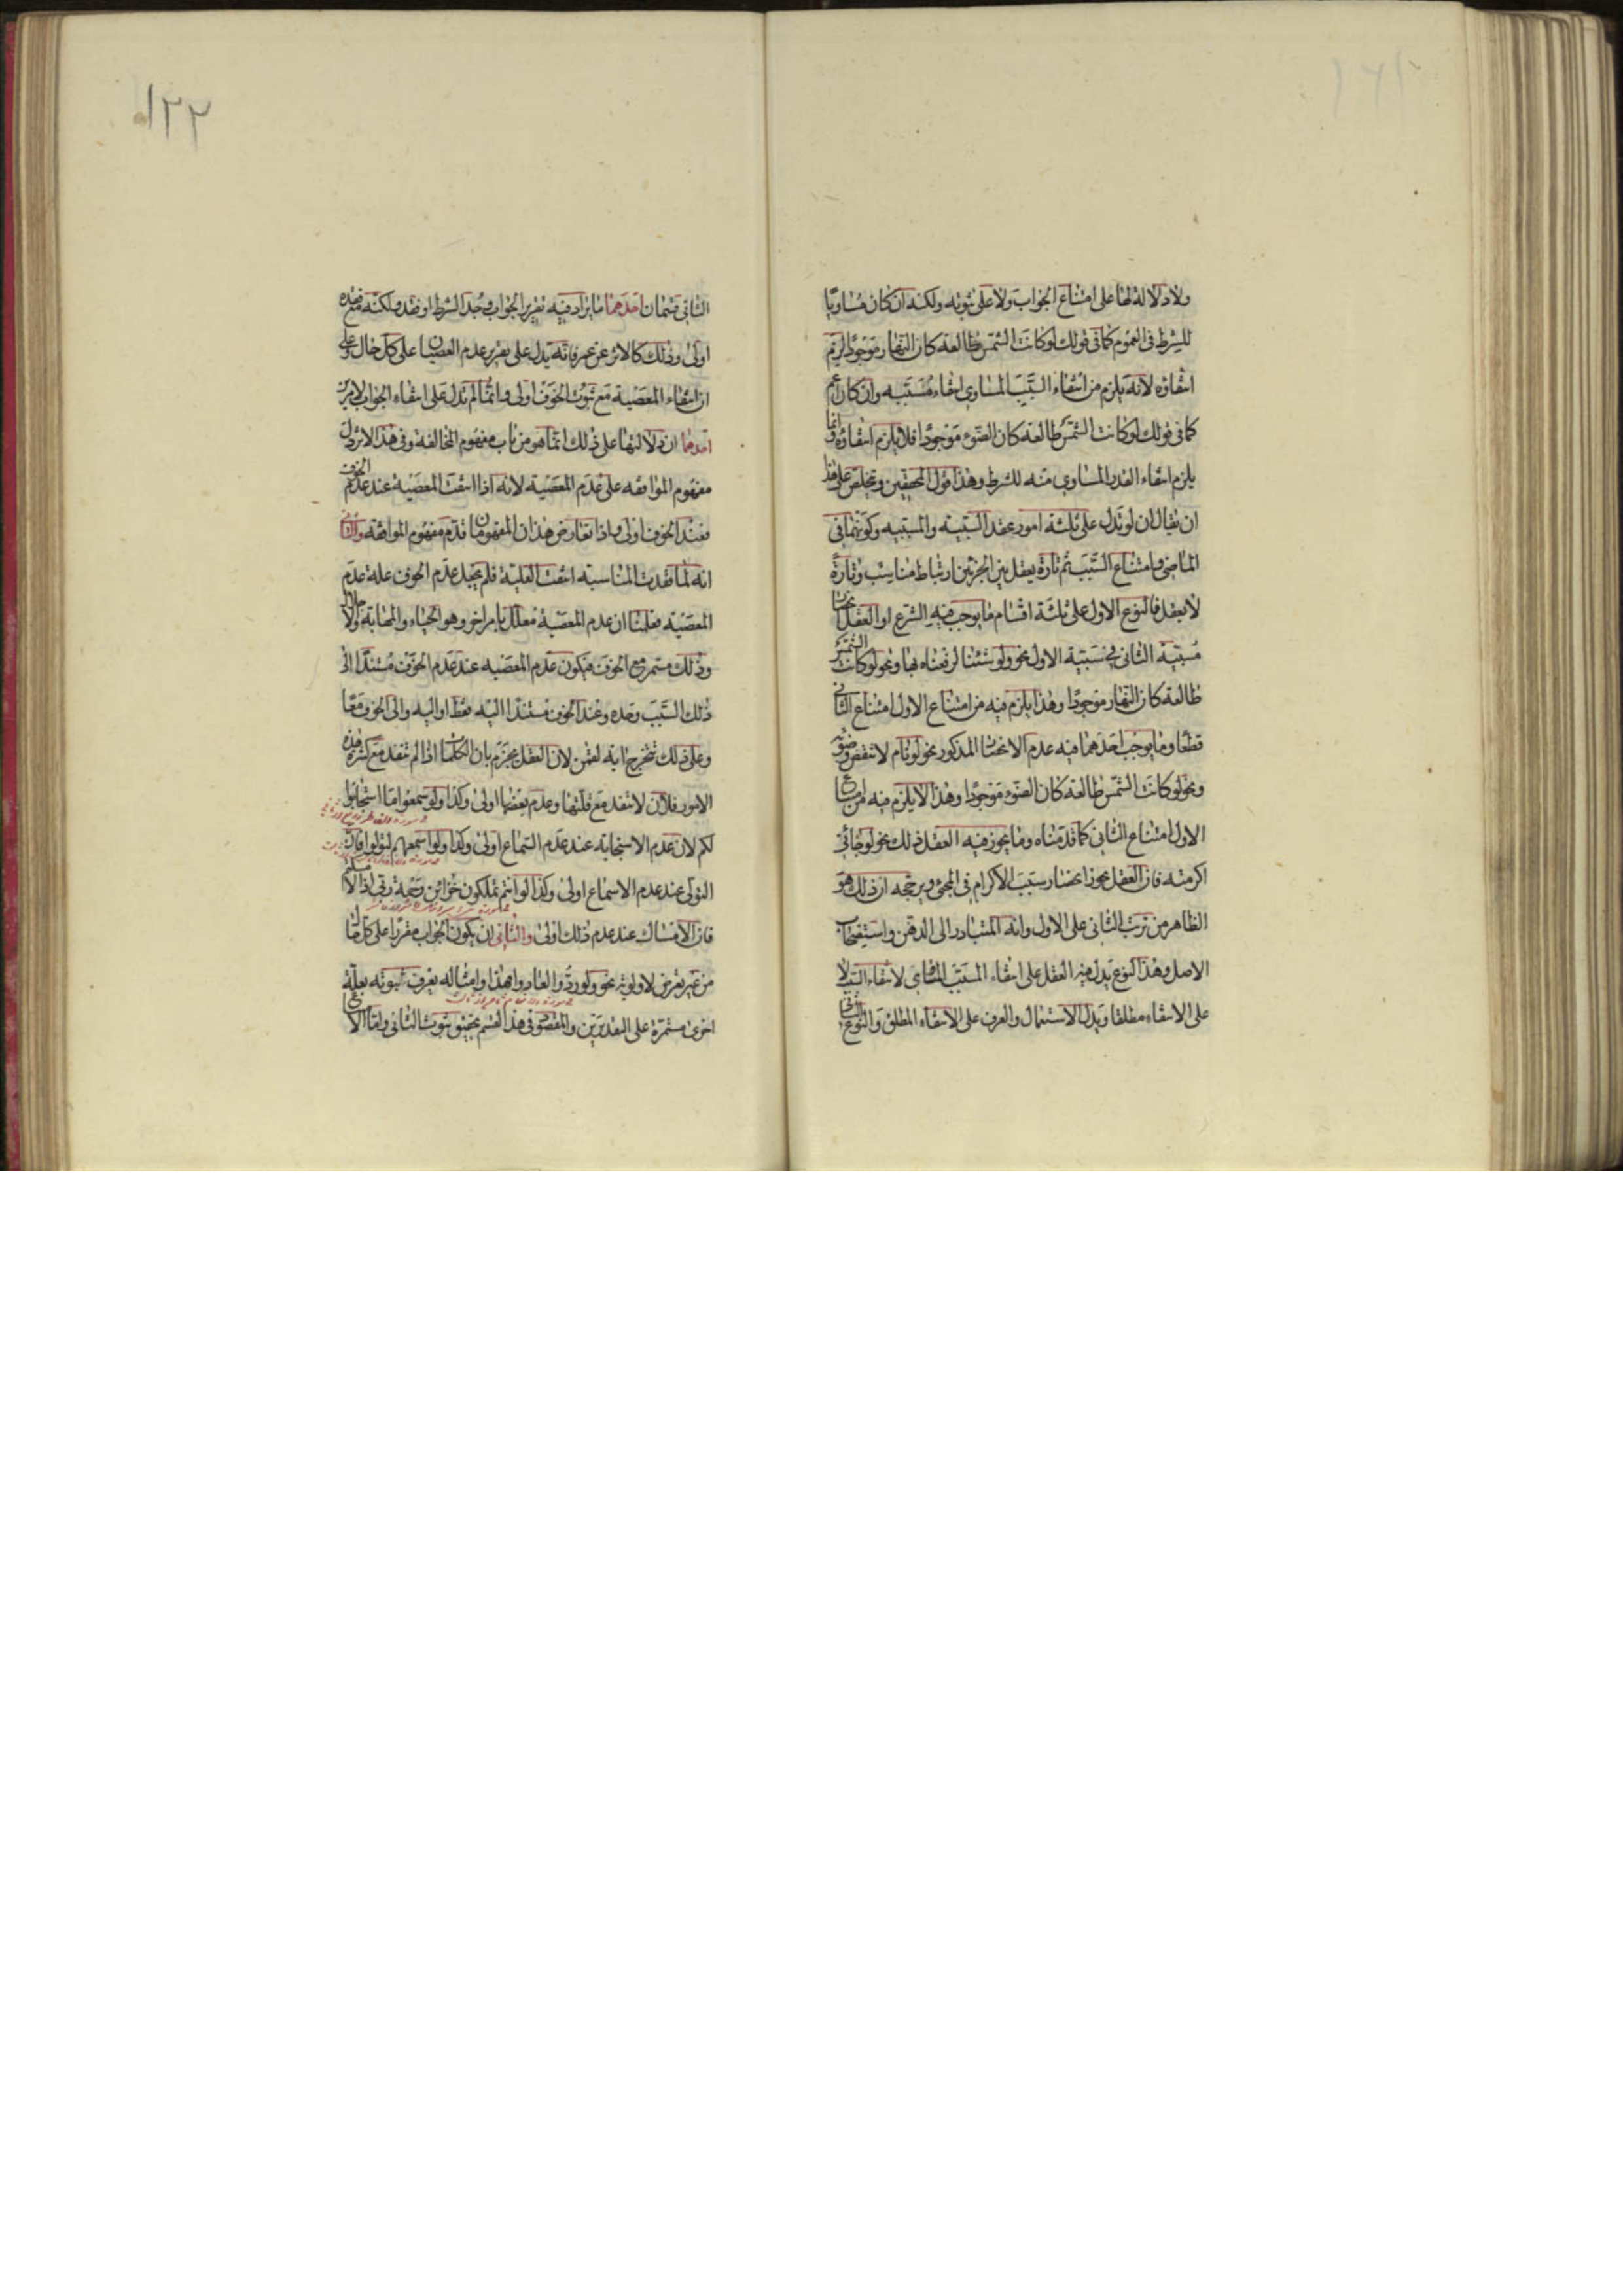 ولا دلالة لها على امتناع الجواب ولا على ثبوته ولكنه ان كان مساويا
للشرط في العموم كما في قولك لو كانت الشمس طالعة كان النهار موجودا لزم
انتفاؤه لانه يلزم من انتفاء السبب المساوي انتفاء مسببه وان كان اعم
كما في قولك لو كانت الشمس طالعة كان الضوء موجودا فلا يلزم انتفاؤه وانما
يلزم انتفاء القدر المساوي منه للشرط وهذا قول المحققين ويتخلص على هذا
ان يقال ان لو تدل على ثلثة امور عقد السببية والمسببيه وكونهما في
الماضي وامتناع السبب ثم تارة يعقل بين الجزئين ارتباط مناسب وتارة
لا يعقل فالنوع الاول على ثلثة اقسام ما يوجب فيه الشرع او العقل انحصار
مسببية الثاني في سببية الاول نحو ولو شئنا لرفعناه بها ونحو لو كانت الشمس
طالعة كان النهار موجودا وهذا يلزم فيه من امتناع الاول امتناع الثاني
قطعا وما يوجب احدهما فيه عدم الانحصار المذكور نحو لو نام لانتقض وضوئه
ونحو لو كانت الشمس طالعة كان الضوء موجودا وهذا لا يلزم فيه من امتناع
الاول امتناع الثاني كما قدمناه وما يجوز فيه العقل ذلك نحو لو جائني
اكرمته فان العقل يجوز انحصار سبب الاكرام في المجئ ويرجحه ان ذلك هو
الظاهر من ترتب الثاني على الاول وانه المتبادر الى الذهن واستصحاب
الاصل وهذا النوع يدل فيه العقل على انتفاء المسبب المساوي لانتفاء السبب لا
على الانتفاء مطلقا ويدل الاستعمال والعرف على الانتفاء المطلق والنوع الثاني
١٢٢
الثاني قسمان احدهما ما يراد فيه تقرير الجواب وجد الشرط او فقد ولكنه مع فقده
اولى وذلك كالاثر عن عمر فانه يدل على تقرير عدم العصيان على كل حال وعلى
ان انتفاء المعصية مع ثبوت الخوف اولى وانما لم تدل على انتفاء الجواب لامرين
احدهما ان دلالتها على ذلك انما هو من باب مفهوم المخالفة وفي هذا الاثر دل
مفهوم الموافقه على عدم المعصية لانه اذا انتفت المعصية عند عدم الخوف
فعند الخوف اولى واذا تعارض هذان المفهومان قدم مفهوم الموافقة والثاني
انه لما فقدت المناسبه انتفت العلية فلم يجعل عدم الخوف علة عدم
المعصية فعلمنا ان عدم المعصية معلل بامر اخر وهو الحياء والمهابة والاجلال
وذلك مستمر مع الخوف فيكون عدم المعصيه عند عدم الخوف مستندا الى
ذلك السبب وحده وعند الخوف مستندا اليه فقط او اليه والى الخوف معا
وعلى ذلك تتخرج اية لقمن لان العقل يجزم بان الكلمات اذا لم تنفد مع كثرة هذه
الامور فلان لا تنفد مع قلتها وعدم بعضها اولى وكذا ولو سمعوا ما استجابوا
لكم لان عدم الاستجابة عند عدم السماع اولى وكذا ولو اسمعهم لتولوا فان
التولى عند عدم الاسماع اولى وكذا لو انتم تملكون خزائن رحمة ربي اذا لامسكتم
فان الامساك عند عدم ذلك اولى والثاني ان يكون الجواب مقررا على كل حال
من غير تعرض لاولوية نحو ولو ردوا لعادوا فهذا وامثاله يعرف ثبوته بعلة
اخرى مستمرة على التقديرين والمقصود في هذا القسم تحقيق ثبوت الثاني واما الامتناع